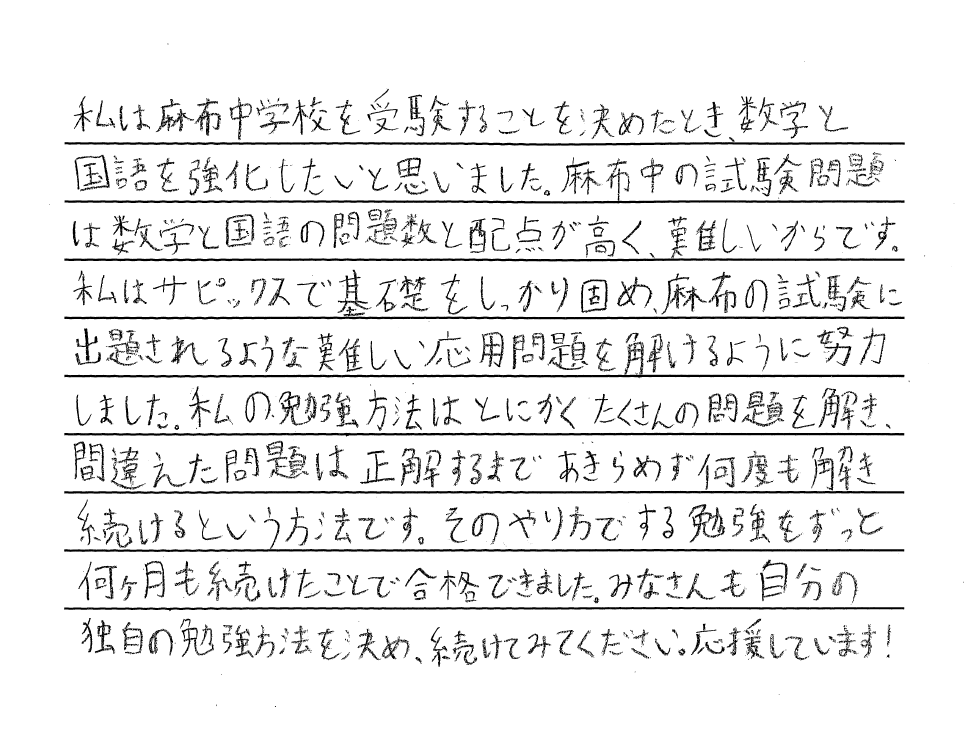 私は麻布中学校を受験することを決めたとき、数学と
国語を強化したいと思いました。麻布中の試験問題
は数学と国語の問題数と配点が高く、難しいからです。
私はサピックスで基礎をしっかり固め、麻布の試験に
出題されるような難しい応用問題を解けるように努力
しました。私の勉強方法はとにかくたくさんの問題を解き、
間違えた問題は正解するまであきらめず何度も解き
続けるという方法です。そのやり方でする勉強をずっと
何ヶ月も続けたことで合格できました。みなさんも自分の
独自の勉強方法を決め、続けてみてください。応援しています!